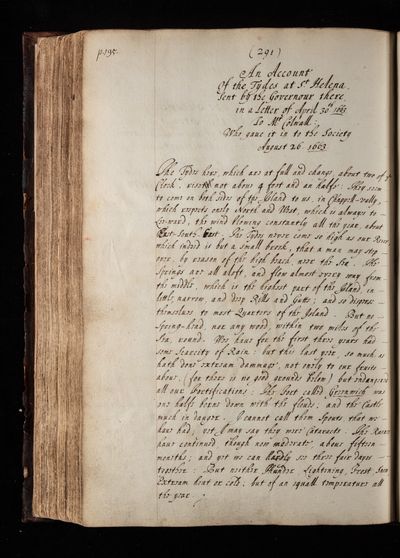 p. 195.
(291)
An Account
Of the Tydes at St Helena,
Sent by the Governour there,
in a Letter of April 30th 1663
To Mr Colwall:
Who gave it in to the Society
August 26. 1663.
The Tydes here, which are at full and change about two of ye
Clock, riseth not above 4 foot and an halfe. They seem
to come on both sides of the Island to us, in Chappell-vally,
which respects only North and West, which is always to
Leeward, the wind blowing constantly all the year about
East-South-East. The Tydes never come so high as our River
which indeed is but a small brook, that a man may step
over, by reason of the high beach near the Sea. The
Springs are all aloft, and flow almost every way from
the middle, which is the highest part of the Island, in
little, narrow, and deep Rills and Gutts; and so disperse
themselves to most Quarters of the Island. But no
Spring-head, nor any wood, within two miles of the
Sea, round. We have for the first three years had
some Scarcity of Rain: but this last year, so much as
hath done extream dammage, not only to our fruits
above, (for there is no good ground below) but endangered
all our fortifications. The Fort called Greenwich was
one halfe borne down with the flouds; and the Castle
much in danger. I cannot call them Spouts that we
have had, yet I may say they were Cataracts. The Raines
have continued, though now moderate, above fifteen
months; and yet we can hardly see three fair dayes
together. But neither Thunder, Lightening, Frost, Snow
Extream heat or cold; but of an equall temperature all
the year.